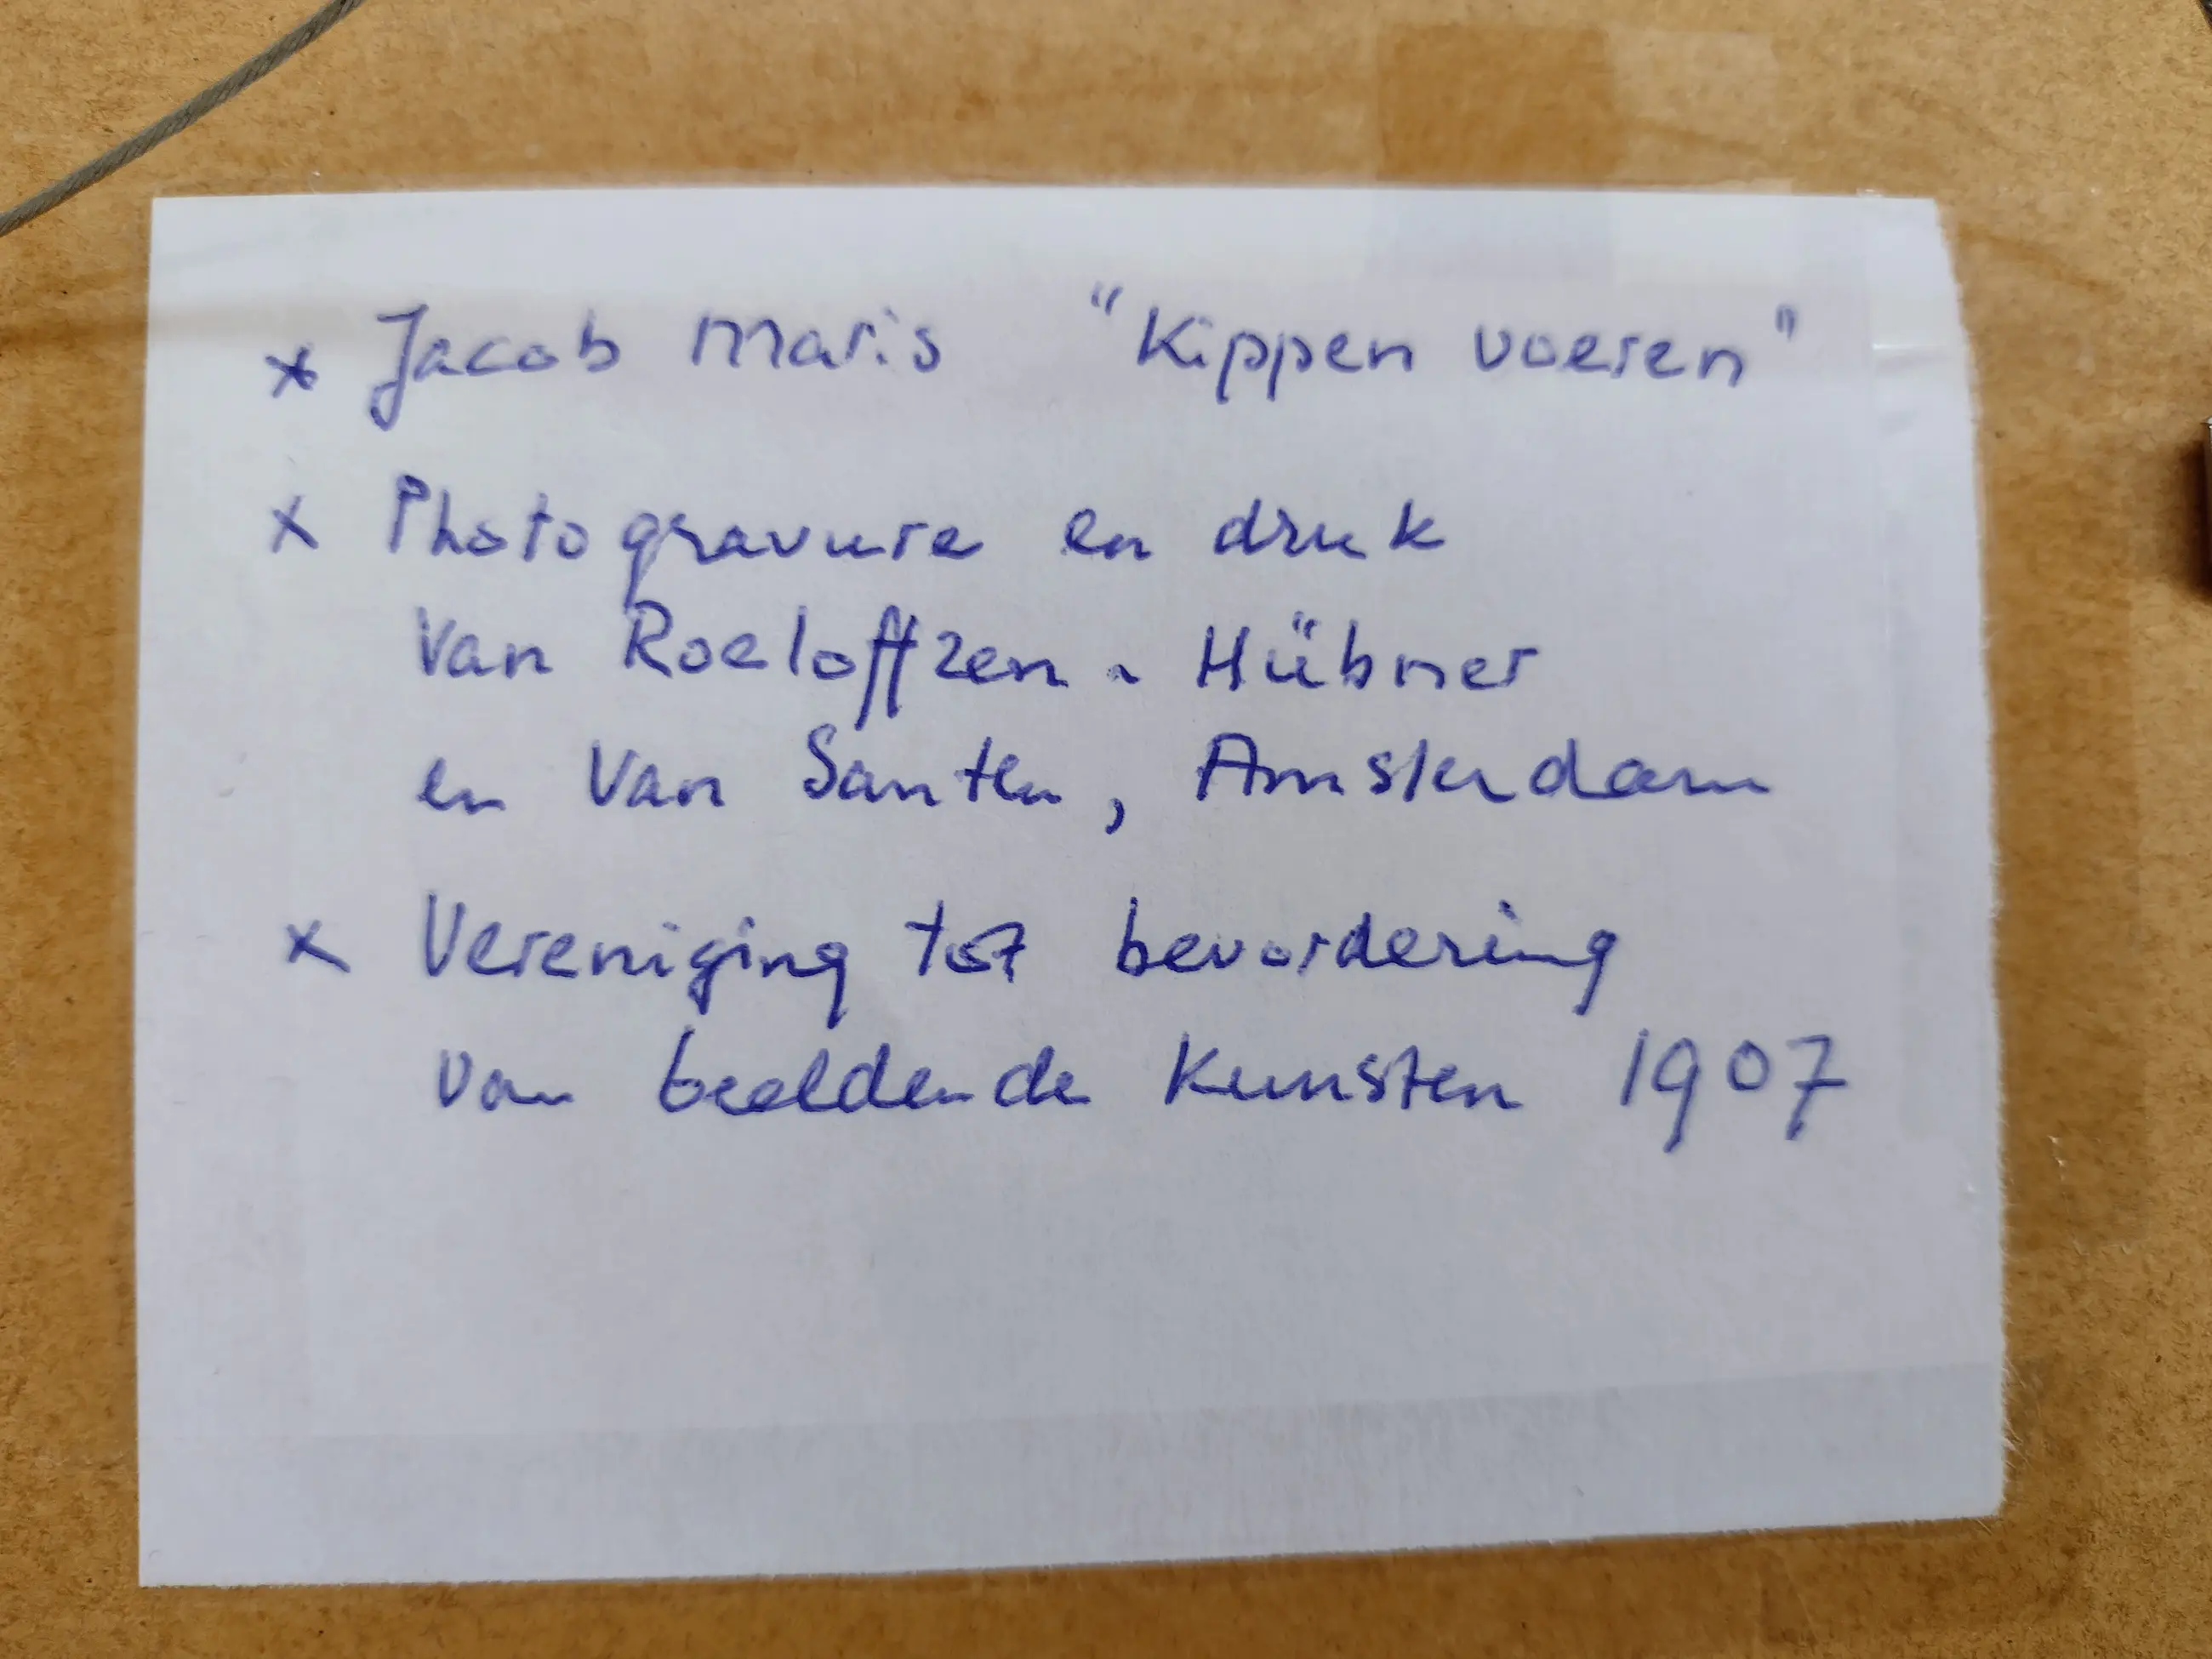 x Jacob Maris "Kippen voeren"
x Photogravure en druk
van Roeloffzen - Hübner
en Van Santen, Amsterdam
x Vereniging tot bevordering
van beeldende Kunsten 1907